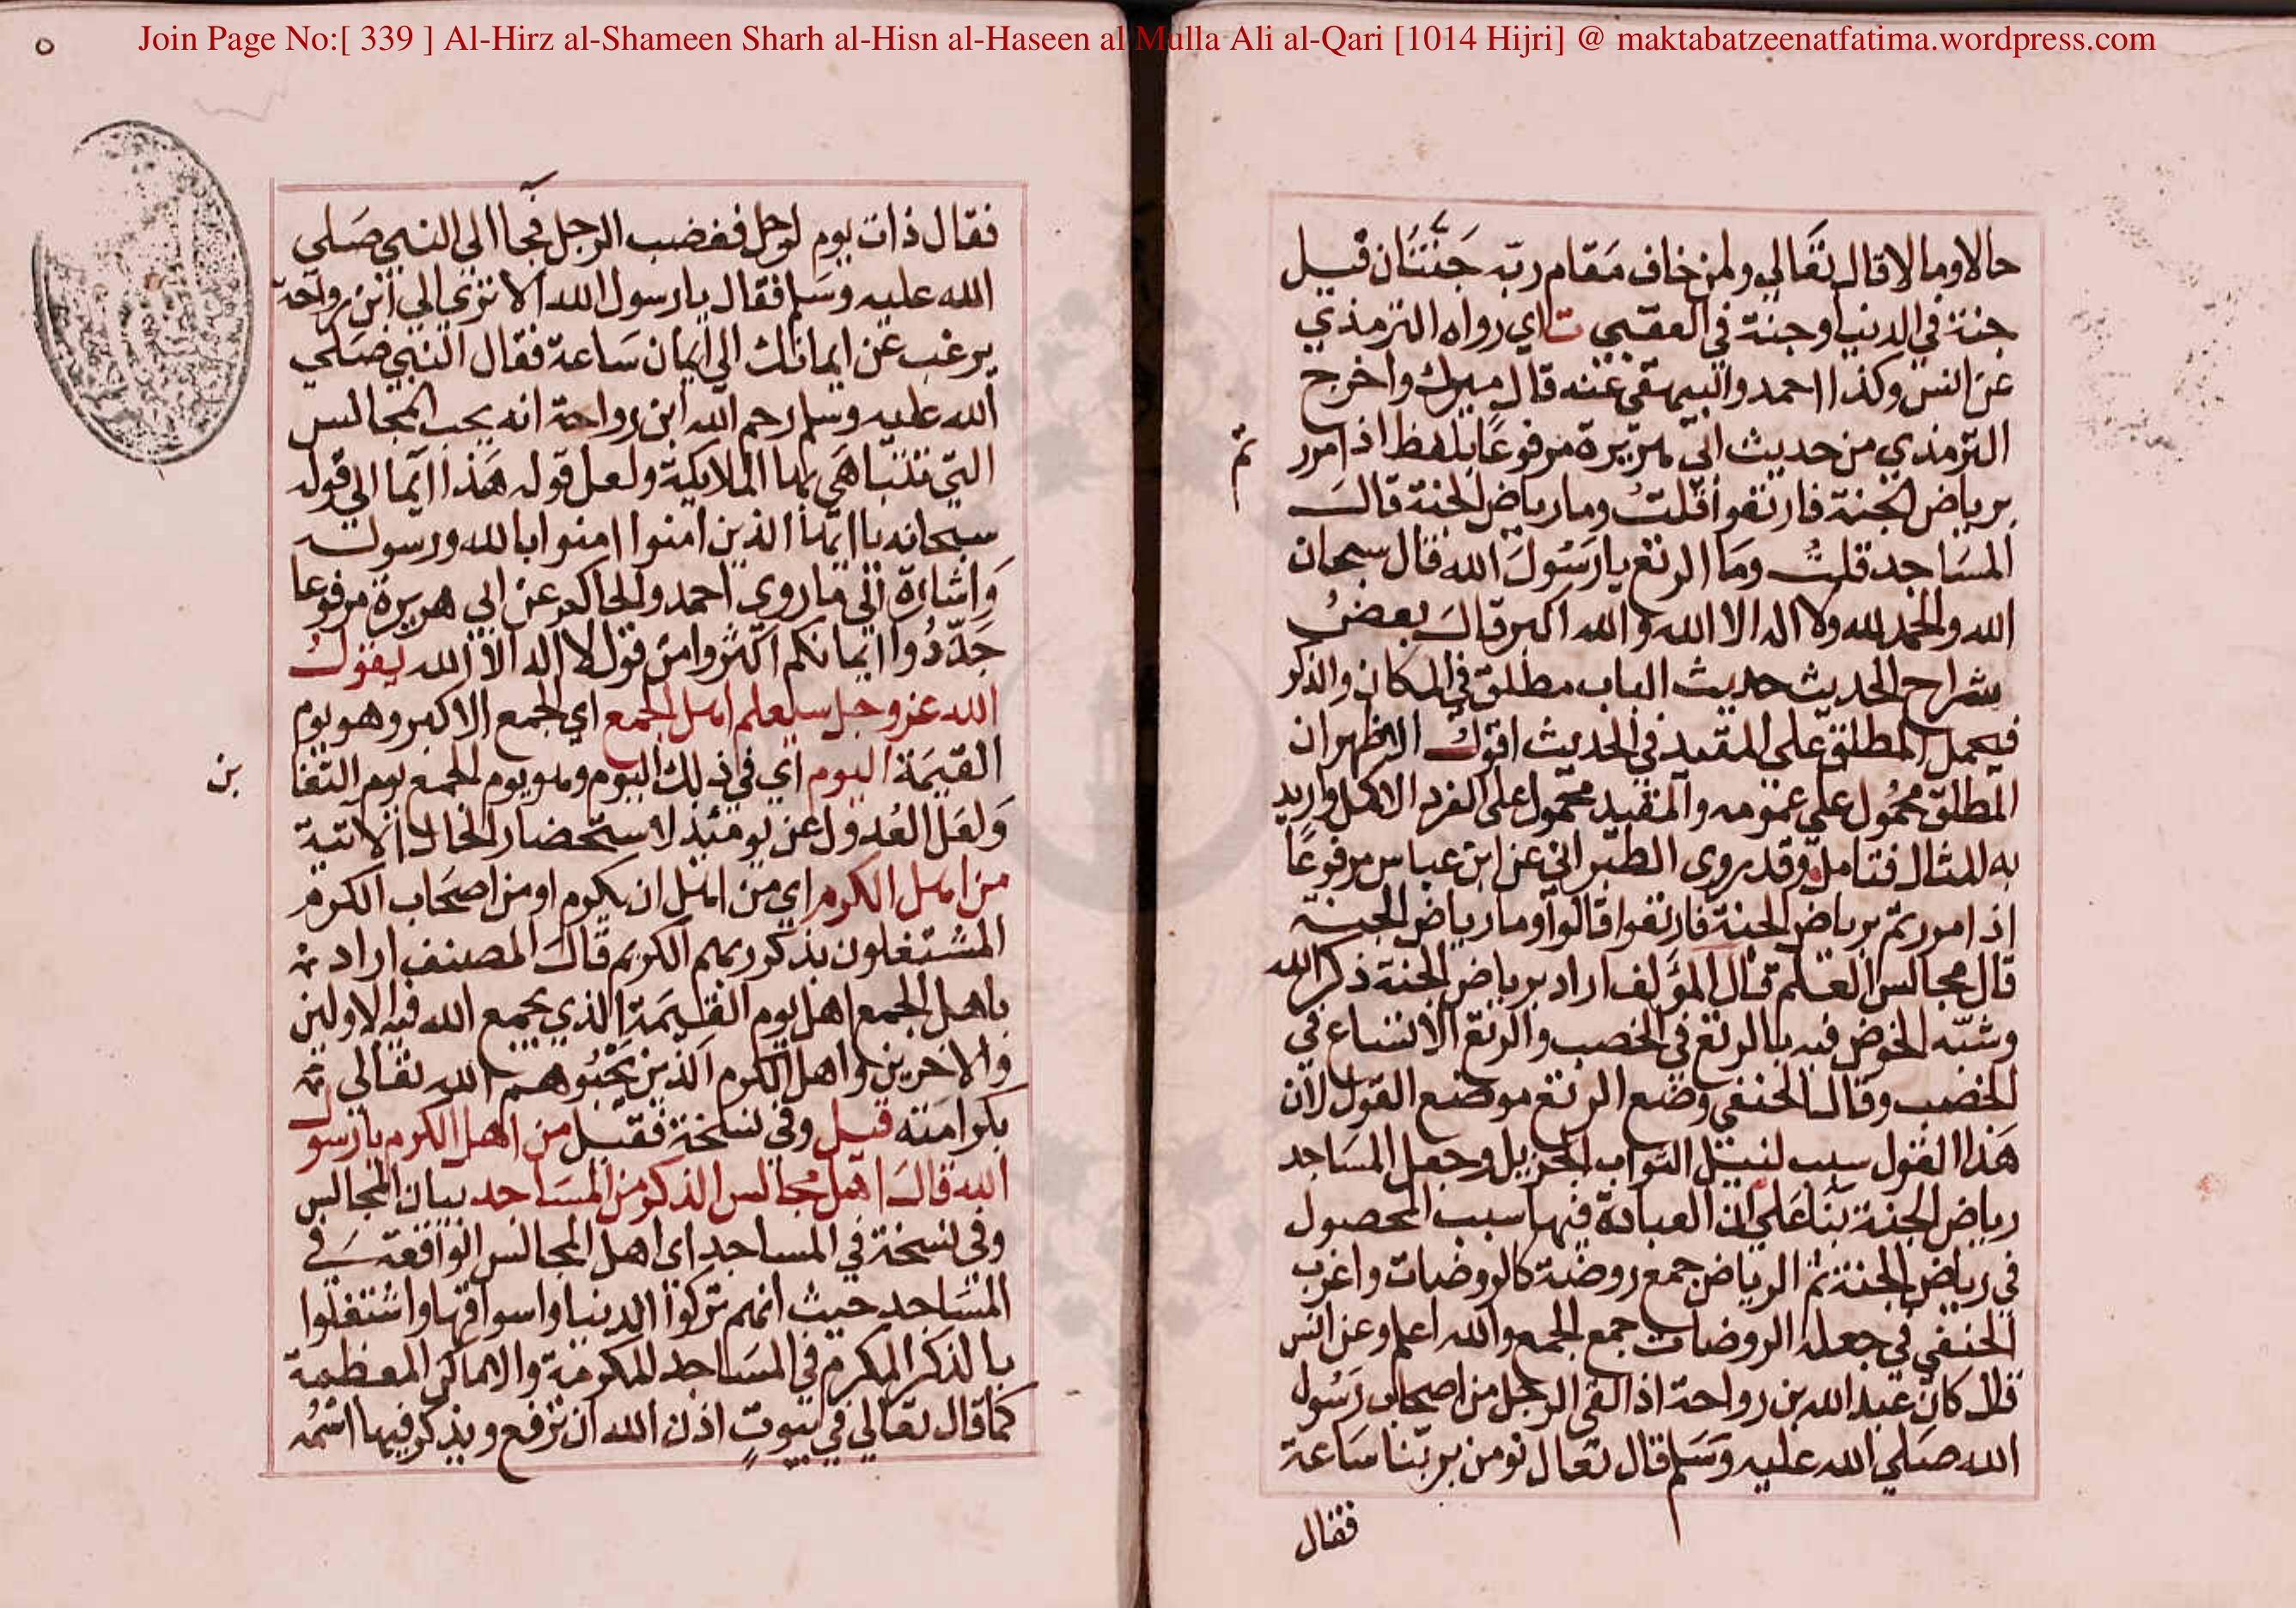 Join Page No:[ 339 ] Al-Hirz al-Shameen Sharh al-Hisn al-Haseen al Mulla Ali al-Qari [1014 Hijri] @ maktabatzeenatfatima.wordpress.com
حالا ومالا قال تعالي ولمن خاف مقام ربه جَنَّتَان قيل
جنة في الدنيا وجنة في العقبي ت اي رواه الترمذي
عن انس وكذا احمد والبيهقي عنه قال ميرك واخرج
الترمذي من حديث ابي هريرة مرفوعًا بلفظ اذا مرر
تم
برياض الجنة فارتعوا قلتُ وما رياض الجنة قالَ
المسَاجد قلتُ ومَا الرتع يا رَسُولَ الله قال سبحان
الله والحمد لله ولا اله الا الله والله اكبر قالَ بعضُ
شراح الحديث حديث الباب مطلق في المكان والذكر
فيحمل المطلق علي المقيد في الحديث اقول الاظهر ان
المطلق محمُول علي عمومه والمقيد محمول على الفرد الاكمل واريد
به المثال فتامل وقد روى الطبراني عن ابن عباس مرفوعًا
اذ امررتم برياض الجنة فارتعوا قالوا وما رياض الجنة
قال مجالس العلم قال المؤلف اراد برياض الجنة ذكر الله
وشبّه الخوض فيه بالرتع في الخصب والرتع الاتساع في
الخصب وقال الحنفي وضع الرتع موضع القول لان
هَذا القول سبب لنيل الثواب الجزيل وجعل المسَاجد
رياض الجنة بنا عَلي ان العبادة فيها سبب المحصول
في رياض الجنة ثم الرياض جمع روضة كالروضات واغرب
الحنفي في جعله الروضات جمع الجمع والله اعلم وعن انس
قال كان عبد الله بن رواحة اذا لقى الرجل من اصحاب رَسُول
الله صَلي الله عليه وَسَلم قال تعال نومن بربّنا سَاعة
فقال
فقال ذات يوم لرجل فغضب الرجل فجا الى النبي صَلي
الله عليه وسَلم فقال يا رسول الله ألا تري الي ابن رواحة
يرغب عن ايمانك الي ايمان سَاعة فقال النبي صَلي
الله عليه وسلم رحم الله ابن رواحة انه يحب المجالس
التي تتباهَي بها الملايكة ولعل قوله هَذا ايما الي قوله
سبحانه يا ايها الذين امنوا امنوا بالله ورسوله
وَاشارة الي ما روي احمد والحاكم عن ابي هريرة مرفوعا
جَدّدُوا ايمانكم اكثروا من قول لا اله الا الله يقول
الله عز وجل سيعلم اهل الجمع اي الجمع الاكبر وهو يوم
القيمَة اليوم اي في ذلك اليوم وهو يوم الجمع يوم التغا
بن
وَلعَل العُدول عن يومئذ لاستحضار الحال الاتية
من اهل الكرم اي من اهل ان يكرم او من اصحَاب الكرم
المشتغلون بذكر ربهم الكريم قال المصنف اراد
باهل الجمع اهل يوم القيمَة الذي يجمع الله فيه الاولين
والاخرين واهل الكرم الذين يَحْبُوهم الله تعالي
بكرامته قيل وفي نسخة فقيل من اهل الكرم يا رسول
الله قالَ اهل مجالس الذكر من المسَاجد بيان المجالس
وفي نسخة في المساجد اي اهل المجالس الواقعة في
المسَاجد حيث انهم تركوا الدنيا واسواقها واشتغلوا
بالذكر المكرم في المسَاجد المكرمة والاماكن المعظمة
كما قال تعالي في بيوتٍ اذن الله ان ترفع ويذكر فيها اسْمُه